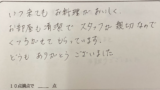 いつ来ても お料理が おいしく
お部屋も清潔で スタッフが 親切なので
くつろがせて もらっています。
どうも ありがとう ございました
10点満点で ___ 点